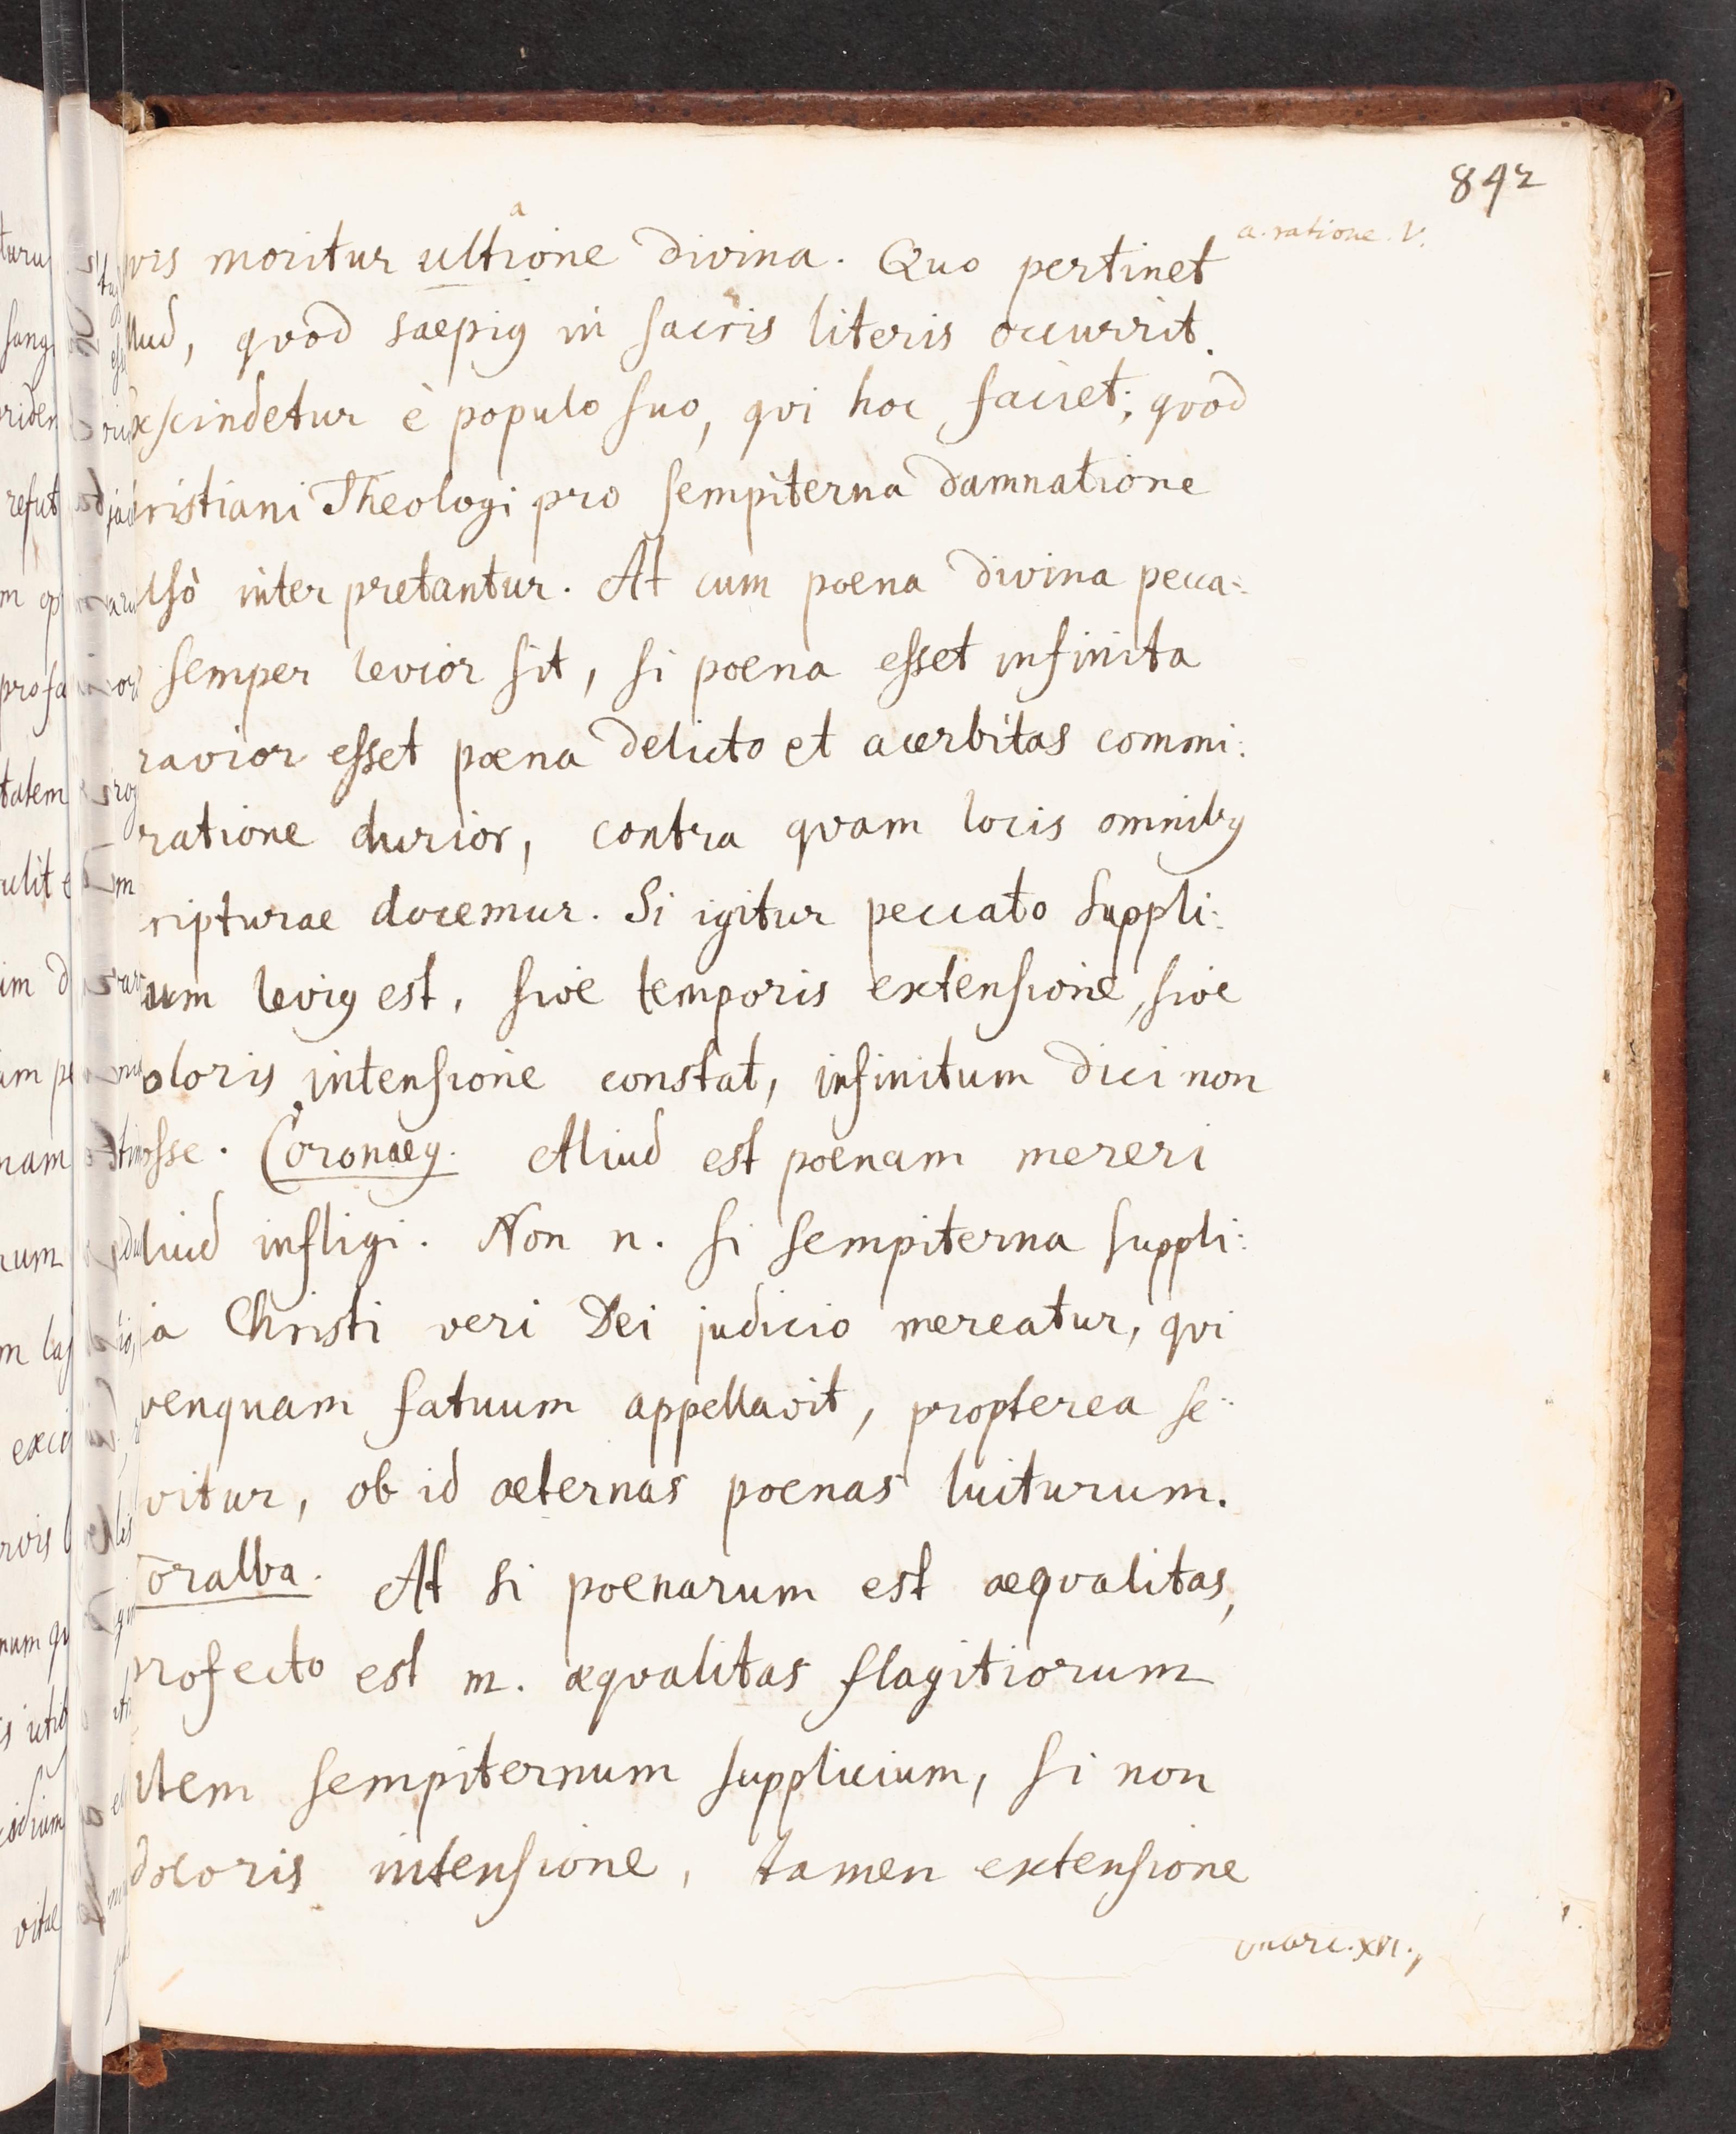 842
a
a. ratione. V.
vis moritur ultione divina. Quo pertinet
llud, qvod saepiꝰ in sacris literis occurrit.
exscindetur è populo suo, qvi hoc faciet; qvod
ristiani Theologi pro sempiterna damnatione
lsò interpretantur. At cum poena divina pecca:
semper levior sit, si poena esset infinita
ravior esset poena delicto et acerbitas commi:
ratione durior, contra qvam locis omnibꝰ
ripturae docemur. Si igitur peccato suppli:
ium leviꝰ est, sive temporis extensione, sive
oloris intensione constat, infinitum dici non
osse. Coronaeꝰ. Aliud est poenam mereri
liud infligi. Non n. si sempiterna suppli:
ia Christi veri Dei judicio mereatur, qvi
venquam fatuum appellavit, propterea se:
vitur, ob id aeternas poenas luiturum.
Toralba. At si poenarum est aeqvalitas,
profecto est m. aeqvalitas flagitiorum
item sempiternum supplicium, si non
doloris intensione, tamen extensione